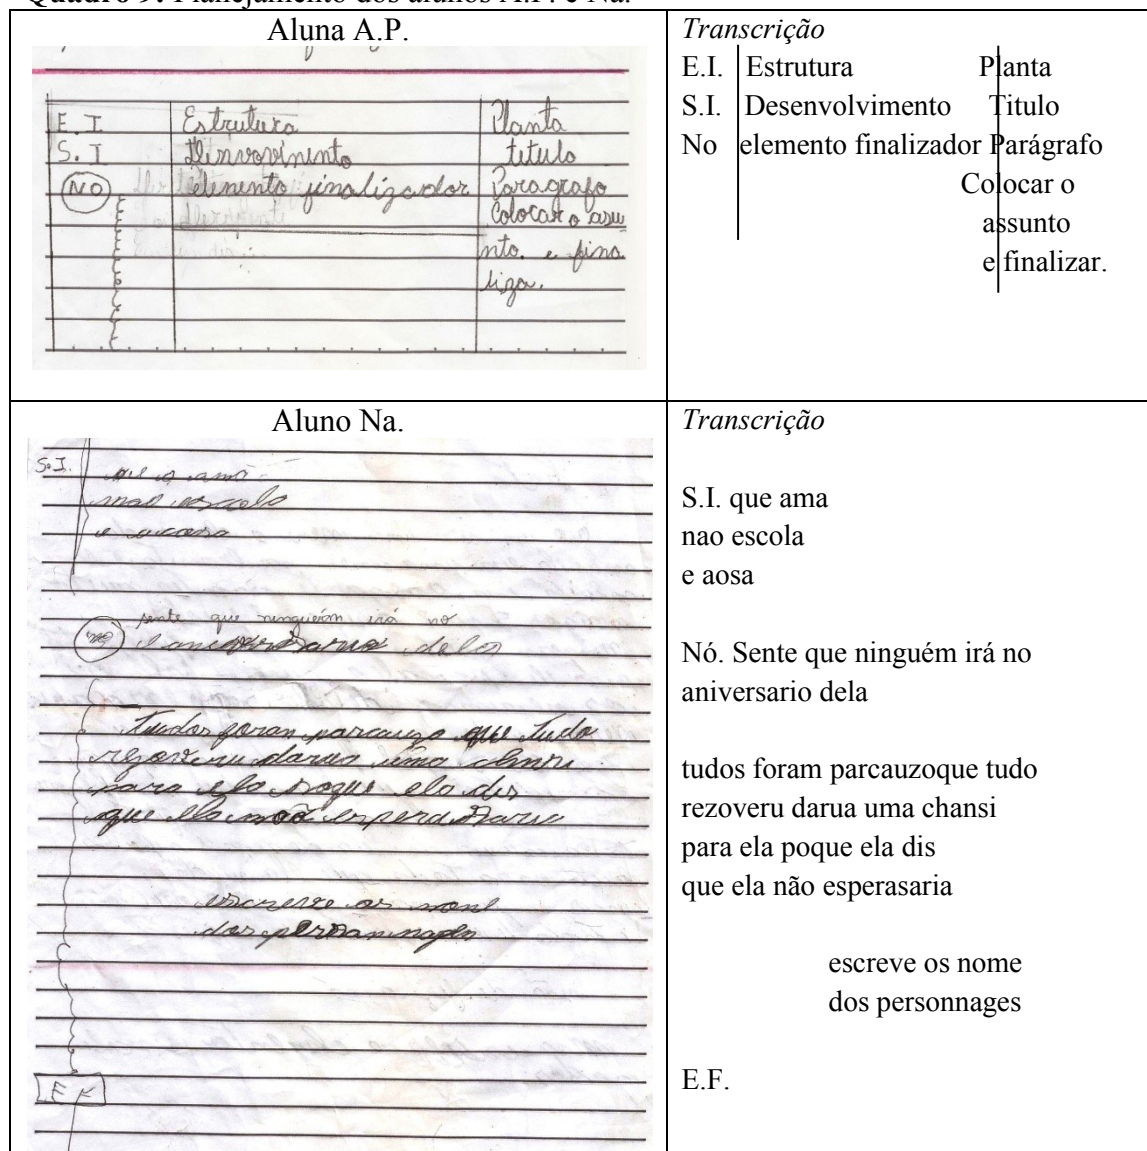 Quadro 9: Planejamento dos alunos A.P. e Na.
Aluna A.P.
E. I Estrutura Planta
S. I titulo
NO elemento finalizador Paragrafo
Colocar o asu
nto. e fina
liza.
Transcrição
E.I. Estrutura Planta
S.I. Desenvolvimento Titulo
No elemento finalizador Parágrafo
Colocar o
assunto
e finalizar.
Aluno Na.
S.I. que
nao escola
e
no sente que ninguém irá no
dela
Tudos foran que tudo
uma
para ela ela dis
que ela não
escreve os nome
dos
E F
Transcrição
S.I. que ama
nao escola
e aosa
Nó. Sente que ninguém irá no
aniversario dela
tudos foram parcauzoque tudo
rezoveru darua uma chansi
para ela poque ela dis
que ela não esperasaria
escreve os nome
dos personnages
E.F.